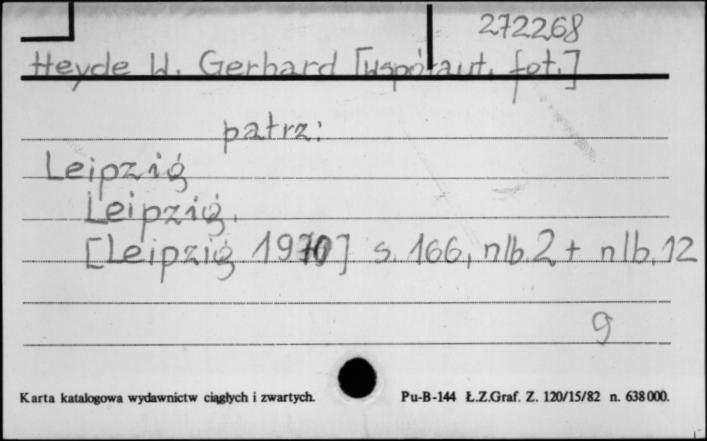 272268
Heyde W. Gerhard [współaut. fot.]
patrz:
Leipzig
Leipzig.
[Leipzig 1970] s. 166, nlb. 2 + nlb. 12
g
Karta katalogowa wydawnictw ciągłych i zwartych. Pu-B-144 Ł.Z.Graf. Z. 120/15/82 n. 638000.